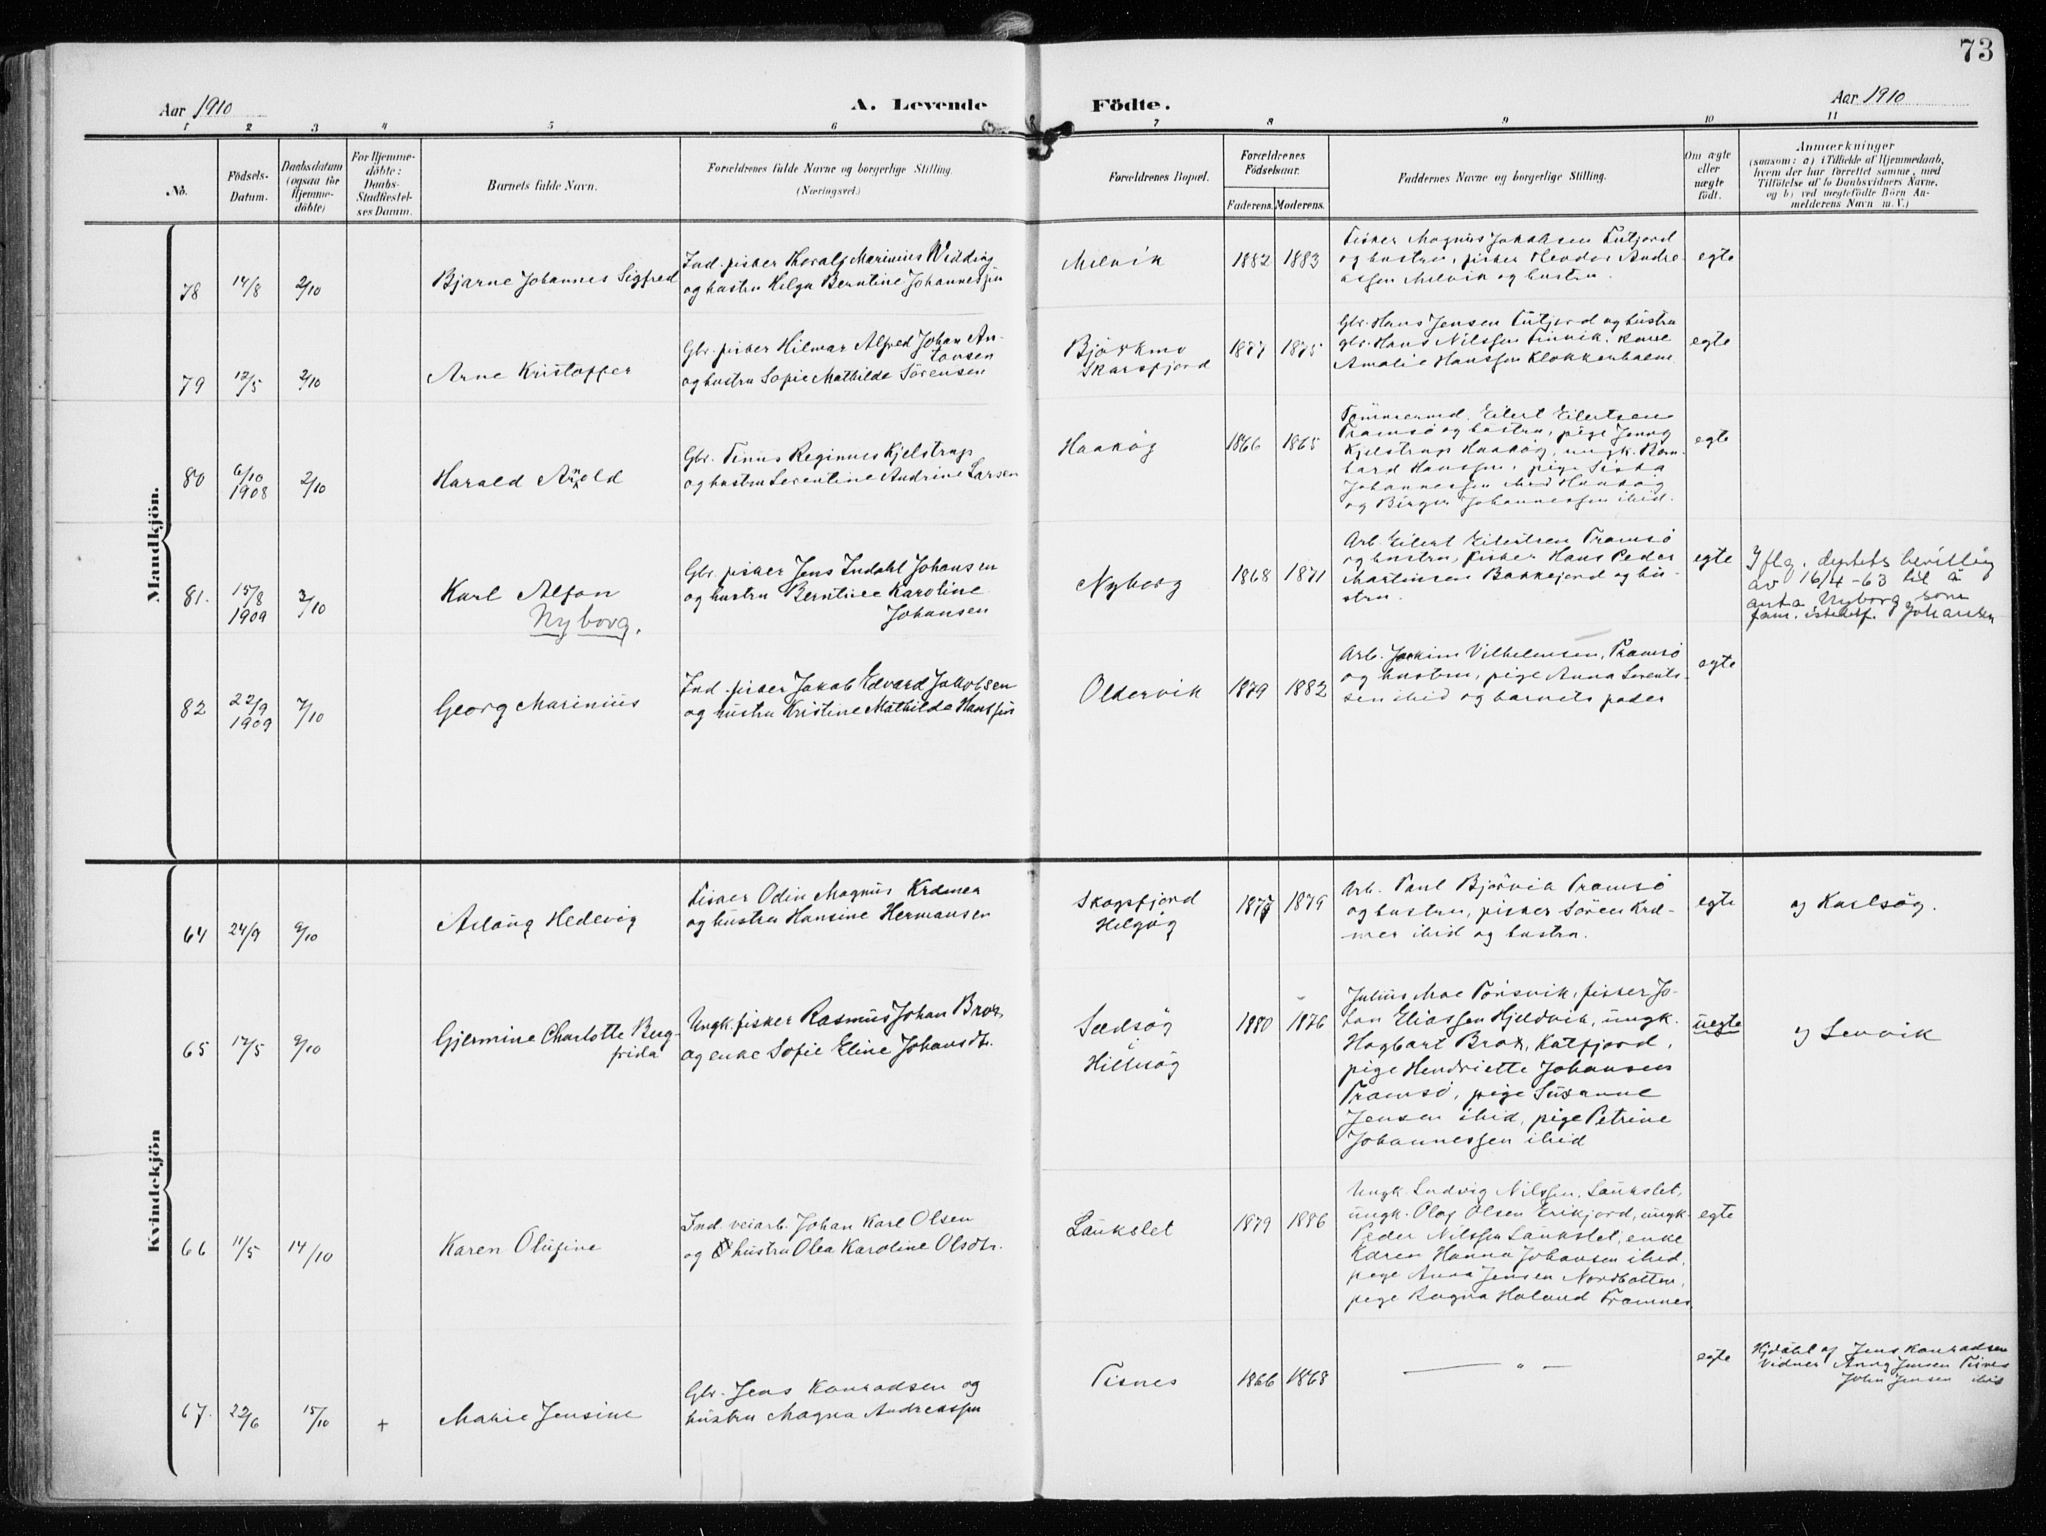 73
Aar 1910
A. Levende
Födte.
Aar 1910
1 2 3 4 5 6 7 8 9 10 11
No.
Födsels-
Datum.
Daabsdatum
(ogsaa for
Hjemme-
döbte)
For Hjemme-
döbte:
Daabs-
Stadfæstel-
ses Datum.
Barnets fulde Navn.
Forældrenes fulde Navne og borgerlige Stilling.
(Næringsvei.)
Forældrenes Bopæl.
Forældrenes
Födselsaar.
Faderens. Moderens.
Faddernes Navne og borgerlige Stilling.
Om ægte
eller
uægte
födt.
Anmærkninger
(saasom: a) i Tilfælde af Hjemmedaab,
hvem der har forrettet samme, med
Tilföielse af to Daabsvidners Navne,
og b) ved uegtefödte Börn An-
melderens Navn m. V.)
Mandkjön.
78
14/8
2/10
Bjarne Johannes Sigfred
Ind. fisker Thoralf Marinius Widding
og hustru Helga Berntine Johannessen
Milvik
1882 1883
Fisker Magnus Jakobsen Futfjord
og hustru, fisker Theodor Andre-
assen Milvik og hustru
egte
79
12/5
2/10
Arne Kristoffer
Gbr. fisker Hilmar Alfred Johan An-
tonsen
og hustru Sofie Mathilde Sörensen
Björkmo
Skarsfjord
1877 1875
Gbr. Hans Jensen Futfjord og hustru
gbr. Hans Nilssen Finvik,
Amalie Hanssen Klokkerholm
egte
80
6/10
1908
2/10
Harald Arnold
n
Gbr. Tinus Reginus Kjelstrup
og hustru Serentine Andrine Larsen
Haakög
1866 1865
Tömmermd. Eilert Eilertsen
Tromsö og hustru, pige Jenny
Kjelstrup Haakög, ungk. Bern-
hard Hanssen, pige
Johannessen Haakög
og Birger Johannessen ibid.
egte
81.
15/8
1909
3/10
Karl Alfon
Nyborg.
Gbr. fisker Jens Indahl Johansen
og hustru Berntine Karoline
Johansen
Nyborg
1868 1871
Arb. Eilert Eilertsen Tromsö
og hustru, fisker Hans Peder
Martinsen Bakkejord og hu-
stru.
egte
Iflg. dptets bevilling
av 16/4-63 til å
anta Nyborg som
fam. istedetf. Johansen
82
22/9
1909
7/10
Georg Marinius
Ind. fisker Jakob Edvard Jakobsen
og hustru Kristine Mathilde Hanssen
Oldervik
1879 1882
Arb. Joakim Vilhelmsen, Tromsö
og hustru, pige Anna Lorent-
sen ibid og barnets fader
egte
Kvindekjön
64
24/9
9/10
Aslaug Hedevig
Fisker Odin Magnus Kræmer
og hustru Hansine Hermansen
Skogsfjord
Helgög
1875 1879
Arb. Paul Björvik Tromsö
og hustru, fisker Sören Kræ-
mer ibid og hustru.
egte
og Karlsög.
65
12/5
9/10
Gjermine Charlotte Berg-
frida
Ungk. fisker Rasmus Johan Brox
og enke Sofie Eline Johansdtr.
Sædsög
Hillesög
1880 1876
Julius Moe Tönsvik, fisker Jo-
han Eliassen Hjeldvik, ungk.
Hagbart Brox, Katfjord,
pige Hendriette Johansen
Tromsö, pige Susanne
Jensen ibid, pige Petrine
Johannessen ibid
uegte
og Senvik
66
11/5
14/10
Karen Olufine
Ind. veiarb. Johan Karl Olsen
og hustru Olea Karoline Olsdtr.
Laukslet
1879 1886
Ungk. Ludvig Nilssen, Laukslet,
ungk. Olaf Olsen Erikjord, ungk.
Peder Nilssen Laukslet, enke
Karen Hanna Johansen ibid,
pige Anna Jensen Nordbotten,
pige Ragna Holand Tromnes
egte
67.
22/6
15/10
+
Marie Jensine
Gbr. Jens Konradsen og
hustru Magna Andreassen
Tisnes
1866 1868
— „ —
egte
Hjdöbt af Jens Konradsen
Vidner Anny Jensen Tisnes
John Jensen ibid